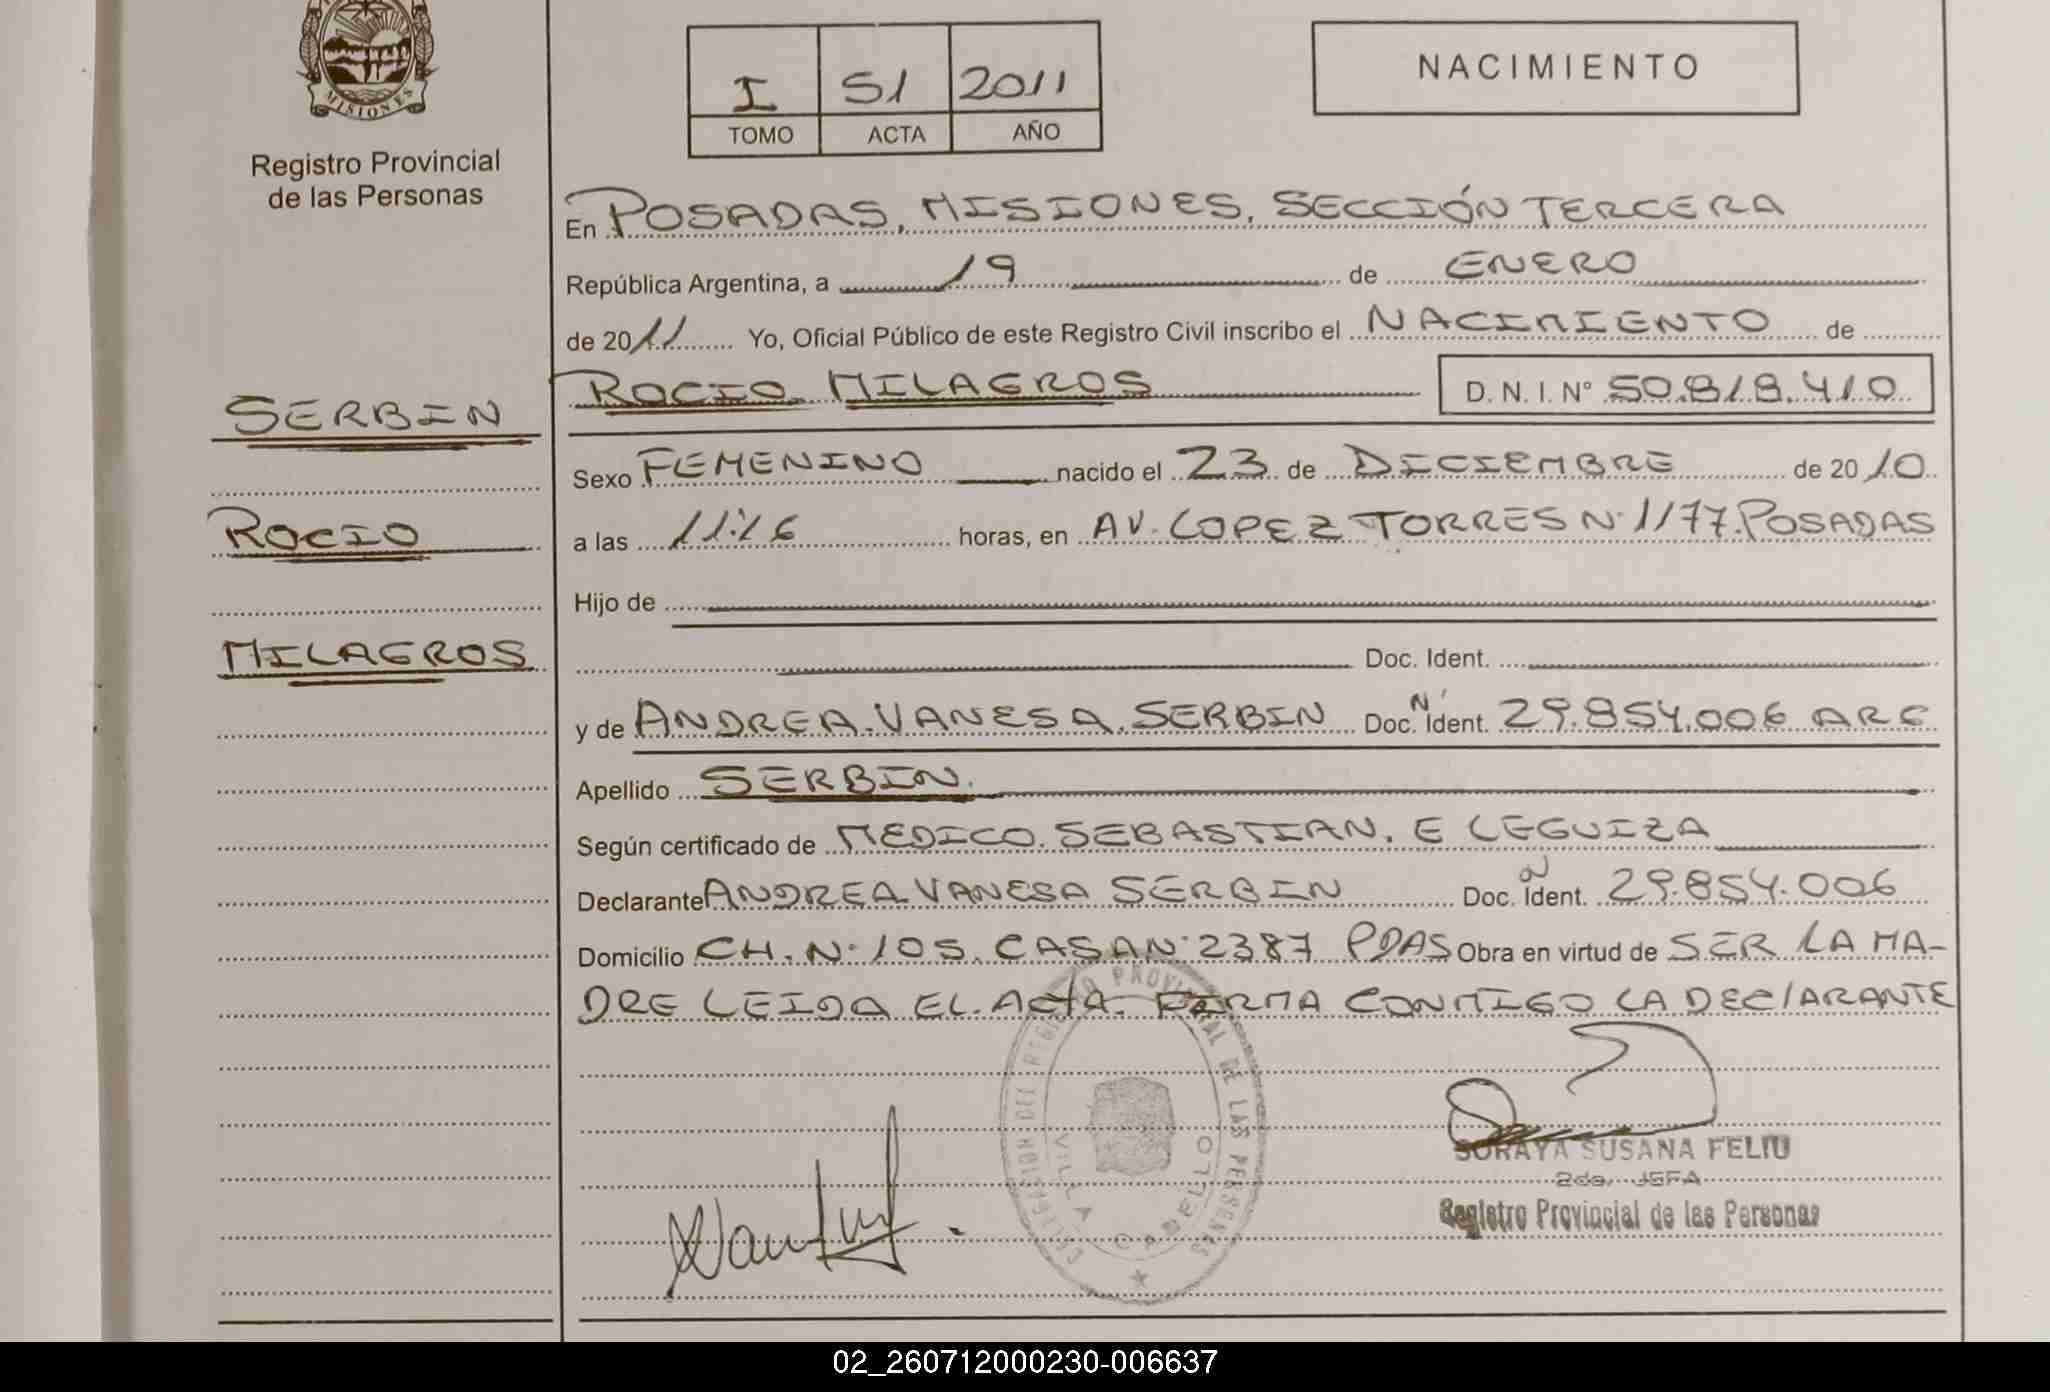 MISIONES
Registro Provincial
de las Personas
I 51 2011
TOMO ACTA AÑO
NACIMIENTO
En POSADAS, MISIONES, SECCIÓN TERCERA
República Argentina, a 19 de ENERO
de 2011 Yo, Oficial Público de este Registro Civil inscribo el NACIMIENTO de
ROCIO MILAGROS D. N. I. N° 50.818.410
SERBIN
ROCIO
MILAGROS
Sexo FEMENINO nacido el 23 de DICIEMBRE de 2010
a las 11:16 horas, en AV. LOPEZ TORRES N° 1177. POSADAS
Hijo de
Doc. Ident.
y de ANDREA VANESA SERBIN Doc. N° Ident. 29.854.006 ARG
Apellido SERBIN.
Según certificado de MEDICO SEBASTIAN. E LEGUIZA
Declarante ANDREA VANESA SERBIN Doc. Ident. 29.854.006
Domicilio CH. N° 105. CASA N° 2387 PDAS Obra en virtud de SER LA MA-
DRE LEIDA EL ACTA. FIRMA CONMIGO LA DECLARANTE
DELEGACION DEL REGISTRO PROVINCIAL DE LAS PERSONAS
VILLA CABELLO
SORAYA SUSANA FELIU
2da. JEFA
Registro Provincial de las Personas
02_260712000230-006637